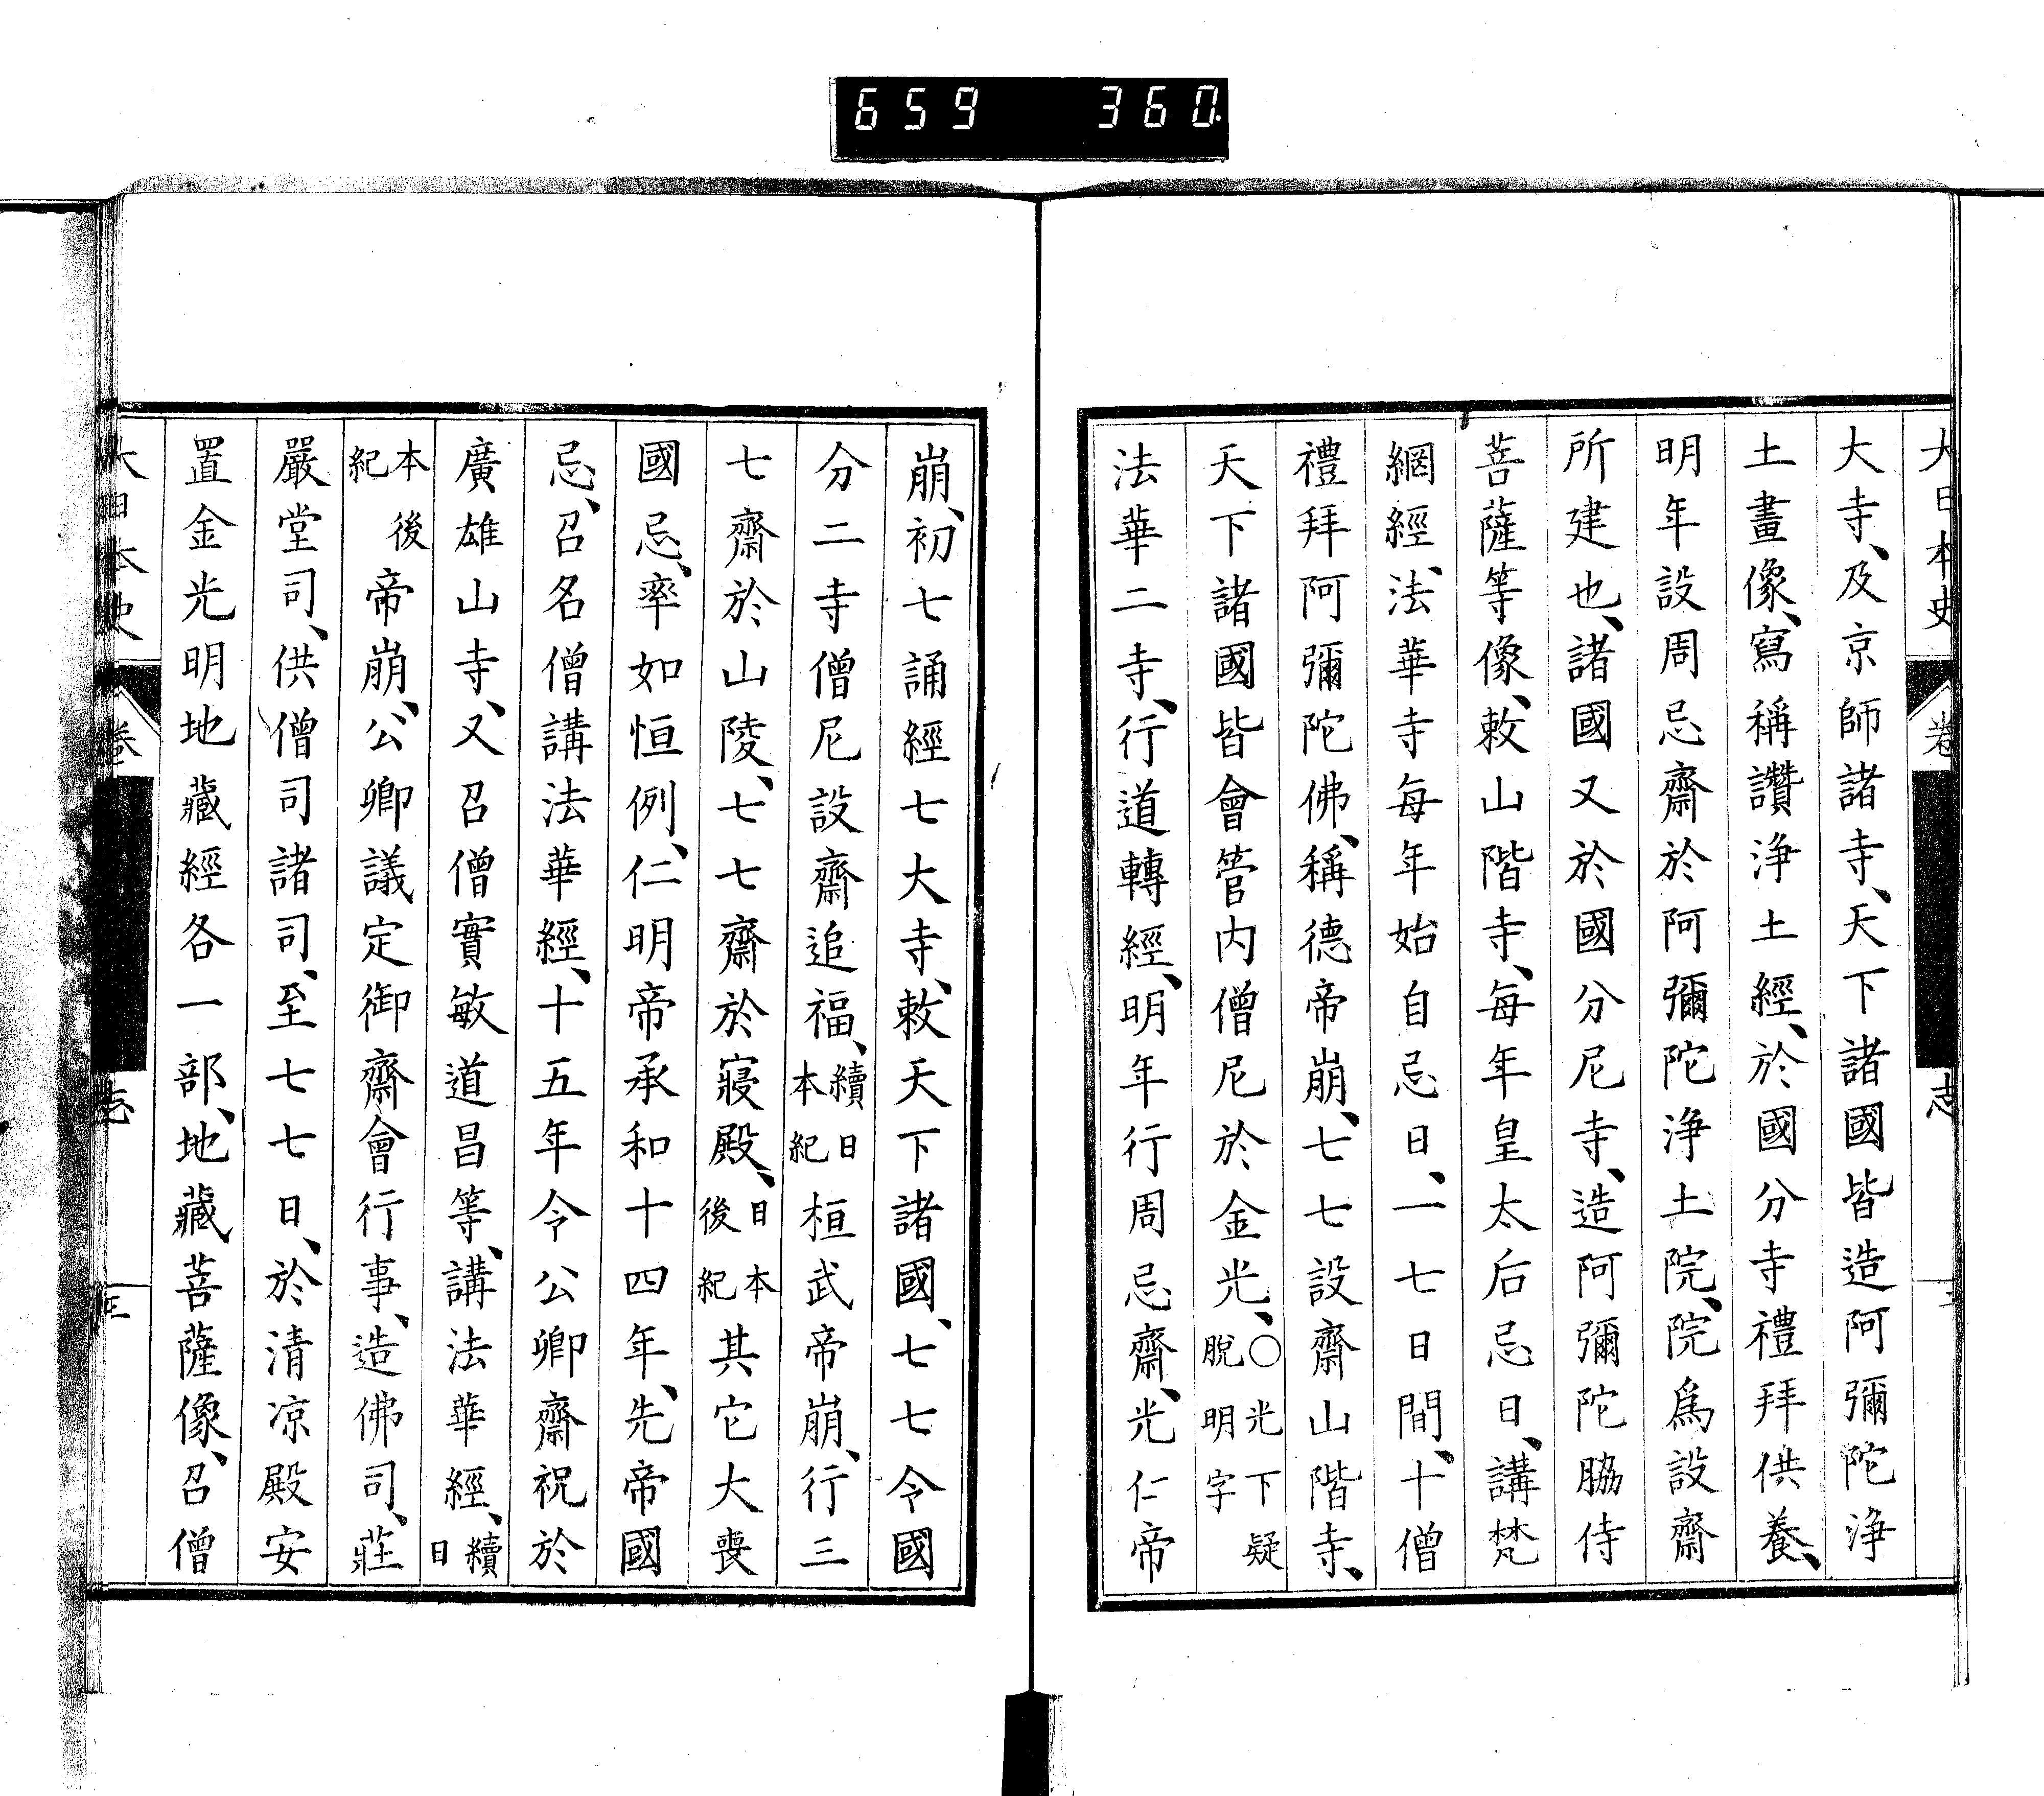 659 360
大日本史 卷 志
大寺、及京師諸寺、天下諸國皆造阿彌陀淨
土畫像、寫稱讚淨土經、於國分寺禮拜供養、
明年設周忌齋於阿彌陀淨土院、院爲設齋
所建也、諸國又於國分尼寺、造阿彌陀脇侍
菩薩等像、敕山階寺、每年皇太后忌日、講梵
網經、法華寺每年始自忌日、一七日間、十僧
禮拜阿彌陀佛、稱德帝崩、七七設齋山階寺、
天下諸國皆會管内僧尼於金光、○光下疑脫明字
法華二寺、行道轉經、明年行周忌齋、光仁帝
崩、初七誦經七大寺、敕天下諸國、七七令國
分二寺僧尼設齋追福、續日本紀桓武帝崩、行三
七齋於山陵、七七齋於寢殿、日本後紀其它大喪
國忌、率如恒例、仁明帝承和十四年、先帝國
忌、召名僧講法華經、十五年令公卿齋祝於
廣雄山寺、又召僧實敏道昌等、講法華經、續日
本後紀帝崩、公卿議定御齋會行事、造佛司、莊
嚴堂司、供僧司諸司、至七七日、於清凉殿安
置金光明地藏經各一部、地藏菩薩像、召僧
大日本史 卷 志 三